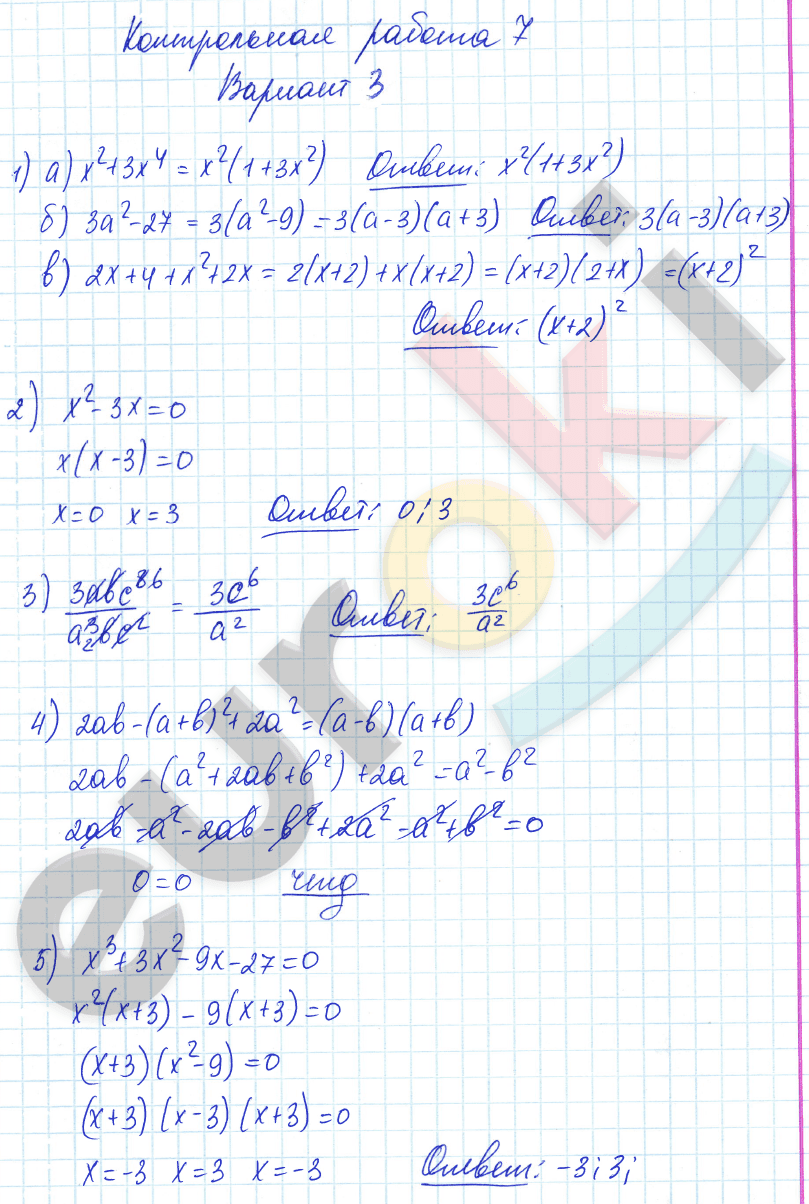 Контрольная работа 7
Вариант 3
1) а) x²+3x⁴ = x²(1+3x²) Ответ: x²(1+3x²)
б) 3a²-27 = 3(a²-9) = 3(a-3)(a+3) Ответ: 3(a-3)(a+3)
в) 2x+4+x²+2x = 2(x+2)+x(x+2) = (x+2)(2+x) =(x+2)²
Ответ: (x+2)²
2) x²-3x=0
x(x-3)=0
x=0 x=3 Ответ: 0; 3
3) 3abc⁸ ⁶/a³₂bc² = 3c⁶/a² Ответ: 3c⁶/a²
4) 2ab-(a+b)²+2a²=(a-b)(a+b)
2ab-(a²+2ab+b²)+2a²=a²-b²
2ab-a²-2ab-b²+2a²-a²+b²=0
0=0 чтд
5) x³+3x²-9x-27=0
x²(x+3)-9(x+3)=0
(x+3)(x²-9)=0
(x+3)(x-3)(x+3)=0
x=-3 x=3 x=-3 Ответ: -3; 3;
euroki